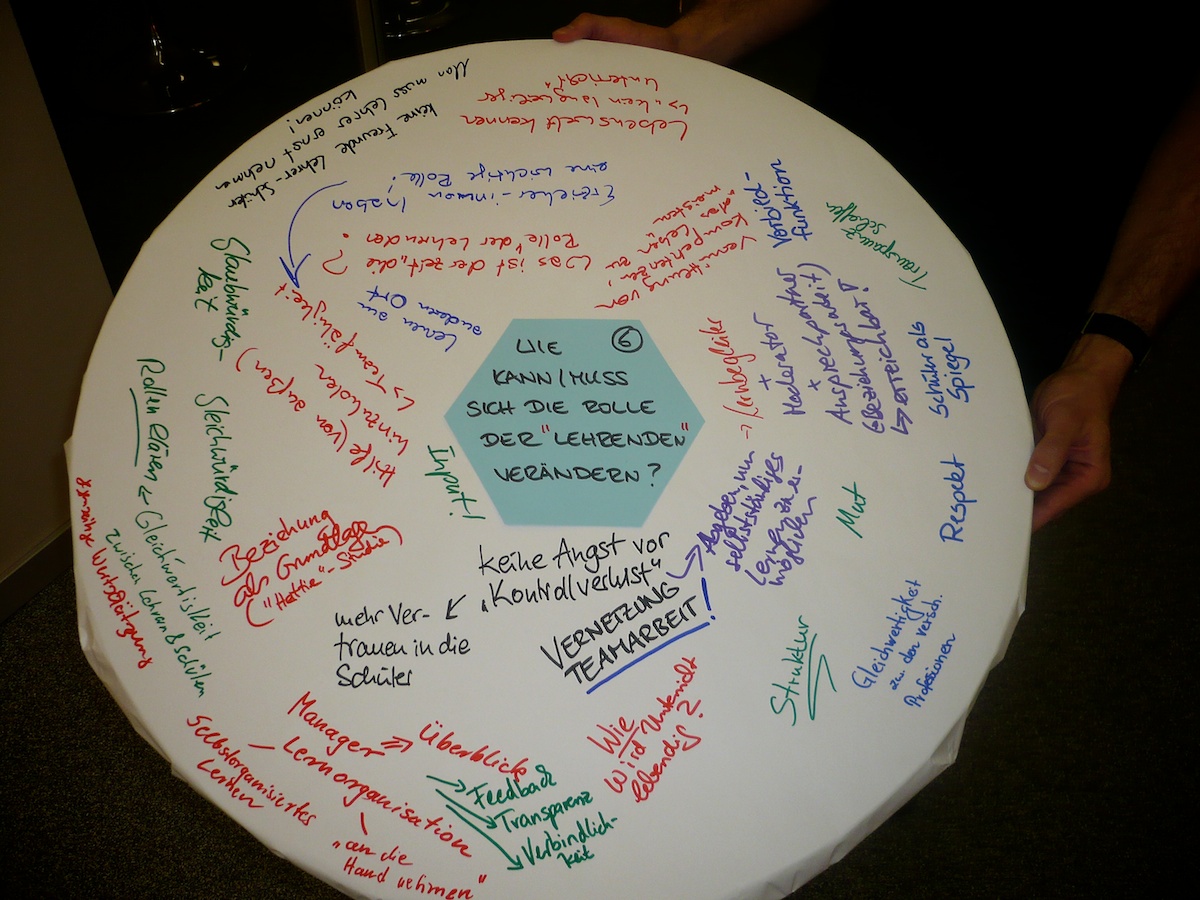 6
WIE
KANN/MUSS
SICH DIE ROLLE
DER "LEHRENDEN"
VERÄNDERN?
Man muss Lehrer ernst nehmen
können!
keine Freunde Lehrer-Schüler
Lebenswelt kennen
↳ "kein langweiliger
Unterricht"
Erzieher-innen haben
eine wichtige Rolle!
Was ist derzeit "die
Rolle" der Lehrenden?
Lernen am
anderen Ort
Vermittlung von
Kompetenzen,
"das Leben" zu
meistern
Vorbild-
funktion
Transparenz
schaffen
→ Lernbegleiter
+
Moderator
+
Ansprechpartner
(Beziehungsarbeit)
↳ erreichbar!
Schüler als
Spiegel
Respekt
Mut
→ Abgeben, um
selbstständiges
Lernen zu er-
möglichen
Gleichwertigkeit
zw. der versch.
Professionen
Struktur
keine Angst vor
"Kontrollverlust"
mehr Ver-
trauen in die
Schüler
VERNETZUNG
TEAMARBEIT!
Wie
wird Unterricht
lebendig?
Manager ⇒ Überblick
Lernorganisation
Selbstorganisiertes
Lernen
"an die
Hand nehmen"
→ Feedback
→ Transparenz
→ Verbindlich-
keit
Beziehung
als Grundlage
("Hattie"-Studie)
Input!
Hilfe (von außen)
hinzuholen
↳ Teamfähigkeit
Glaubwürdig-
keit
Gleichwürdigkeit
Rollen klären ← Gleichwertigkeit
zwischen Lehrern & Schülern
gegenseitige Wertschätzung